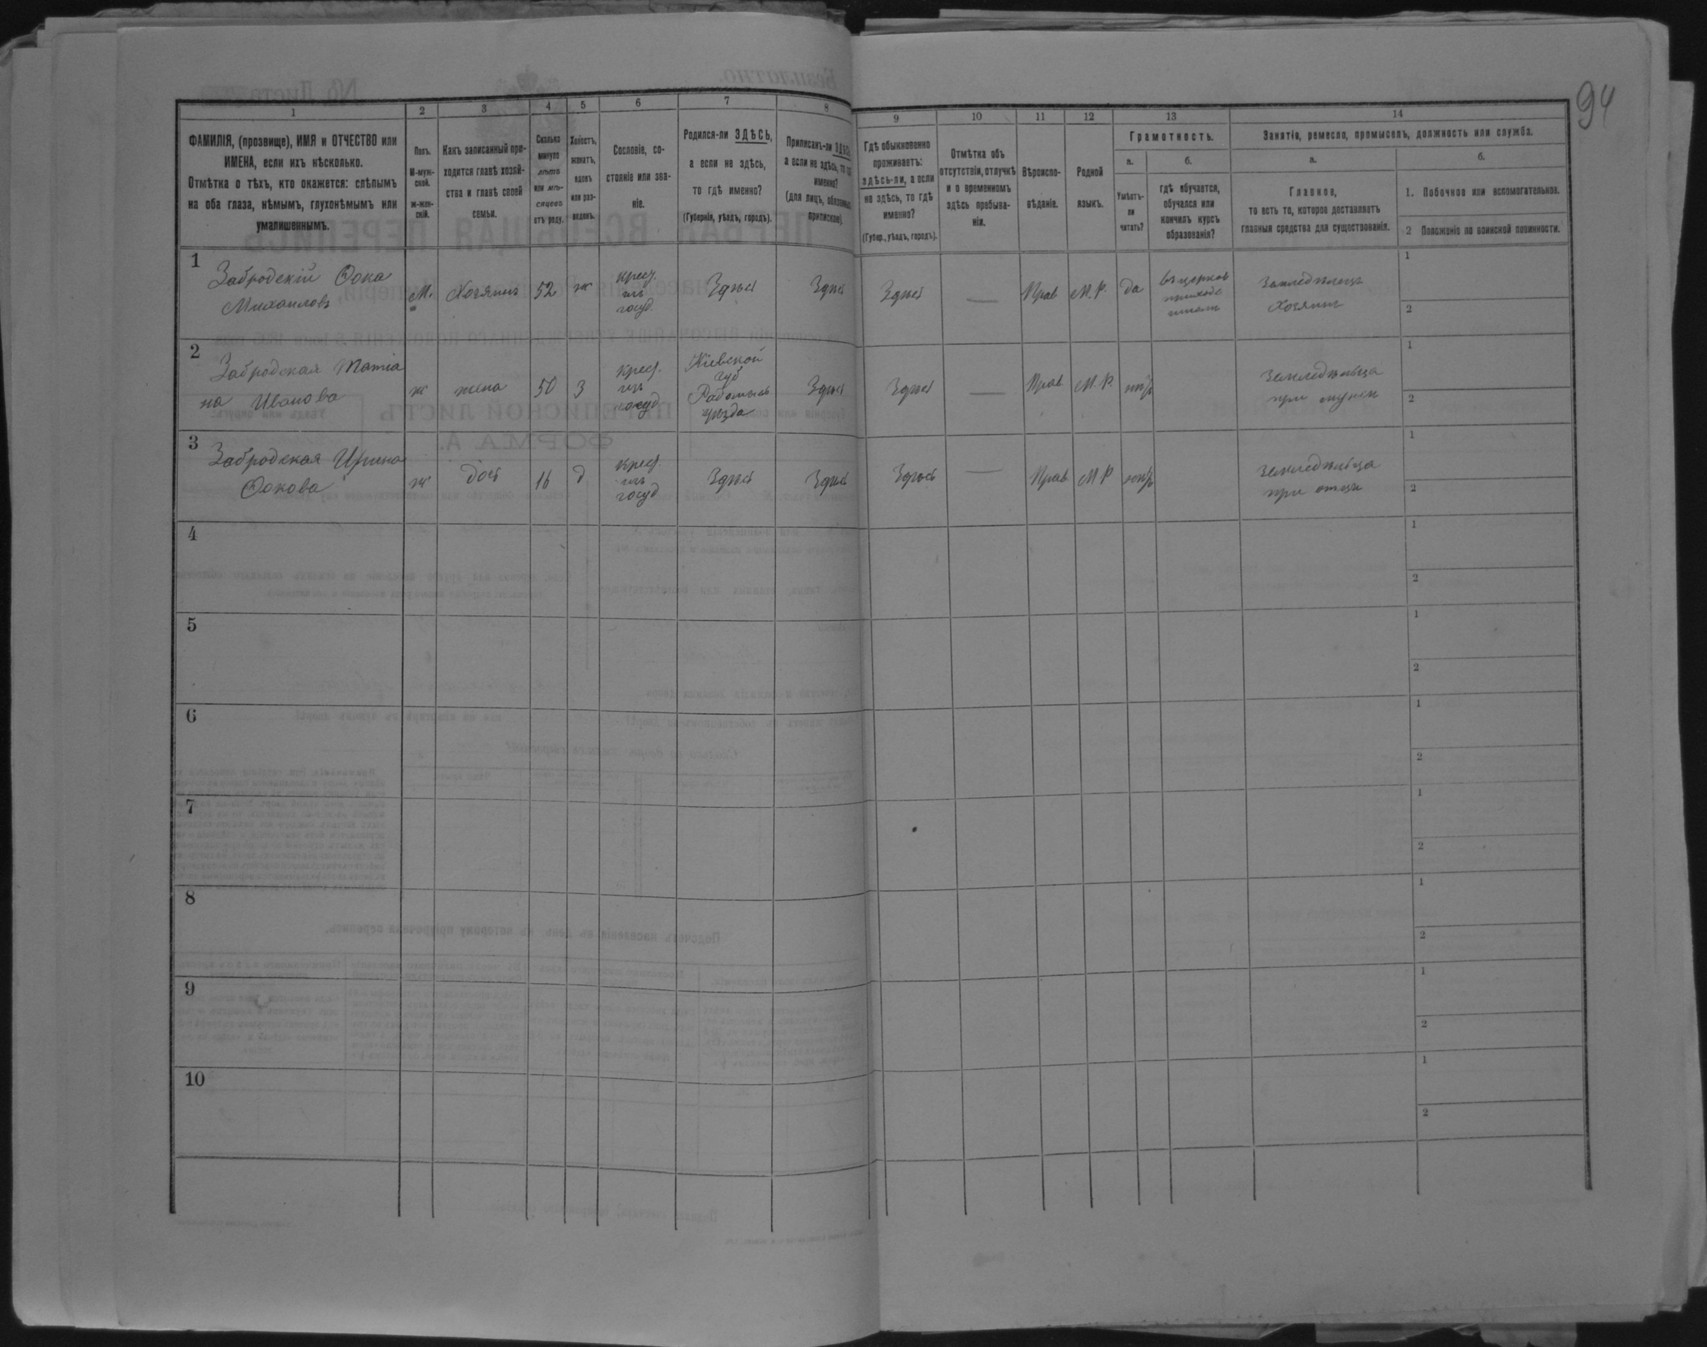 94
1
2
3
4
5
6
7
8
9
10
11
12
13
14
ФАМИЛІЯ, (прозвище), ИМЯ и ОТЧЕСТВО или
ИМЕНА, если ихъ нѣсколько.
Отмѣтка о тѣхъ, кто окажется: слѣпымъ
на оба глаза, нѣмымъ, глухонѣмымъ или
умалишеннымъ.
Полъ.
М-муж-
ской.
ж-жен-
скій.
Какъ записанный при-
ходится главѣ хозяй-
ства и главѣ своей
семьи.
Сколько
минуло
лѣтъ
или мѣ-
сяцевъ
отъ роду.
Холостъ,
женатъ,
вдовъ
или раз-
веденъ.
Сословіе, со-
стояніе или зва-
ніе.
Родился-ли ЗДѢСЬ,
а если не здѣсь,
то гдѣ именно?
(Губернія, уѣздъ, городъ).
Приписанъ-ли ЗДѢСЬ,
а если не здѣсь, то гдѣ
именно?
(для лицъ, обязанныхъ
припискою).
Гдѣ обыкновенно
проживаетъ:
здѣсь-ли, а если
не здѣсь, то гдѣ
именно?
(Губер., уѣздъ, городъ).
Отмѣтка объ
отсутствіи, отлучкѣ
и о временномъ
здѣсь пребыва-
ніи.
Вѣроиспо-
вѣданіе.
Родной
языкъ.
Грамотность.
а.
Умѣетъ-
ли
читать?
б.
гдѣ обучается,
обучался или
кончилъ курсъ
образованія?
Занятія, ремесло, промыселъ, должность или служба.
а.
Главное,
то есть то, которое доставляетъ
главныя средства для существованія.
б.
1. Побочное или вспомогательное.
2 Положеніе по воинской повинности.
1
Забродскій Фока
Михаиловъ
М.
Хозяинъ
52
ж
крест.
изъ
госуд.
Здѣсь
Здѣсь
Здѣсь
—
Прав
М.Р.
да
въ церков
приходс
школѣ
Земледѣлецъ
Хозяинъ
1
2
2
Забродская Татіа
на Иванова
ж
жена
50
З
крест.
изъ
госуд
Кіевской
губ
Радомысль
уѣзда
Здѣсь
Здѣсь
—
Прав
М.Р.
нѣтъ
Земледѣлица
при мужѣ
1
2
3
Забродская Ирина
Фокова
ж
дочь
16
д
крест.
изъ
госуд
Здѣсь
Здѣсь
Здѣсь
—
Прав
М Р
нѣтъ
Земледѣлица
при отцѣ
1
2
4
1
2
5
1
2
6
1
2
7
1
2
8
1
2
9
1
2
10
1
2